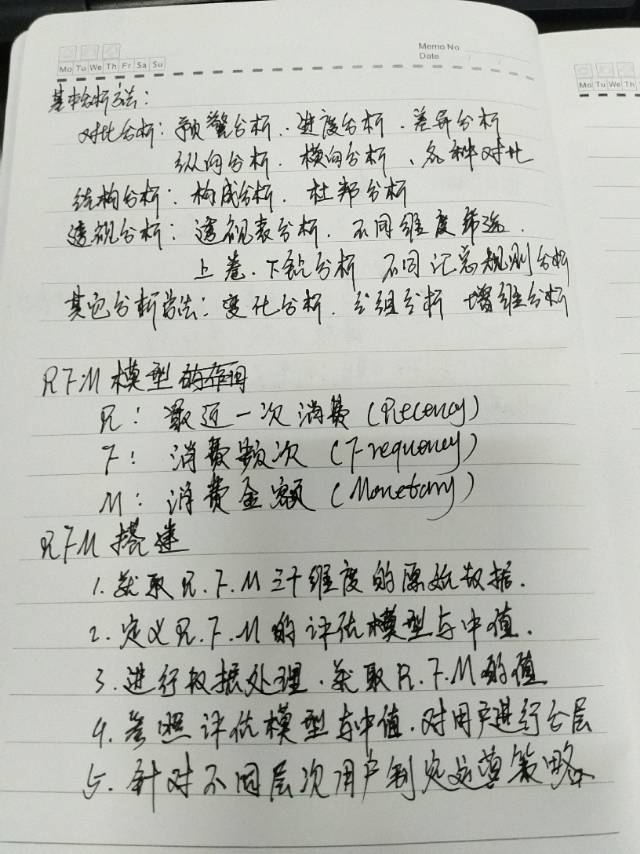 Mo Tu We Th Fr Sa Su
Memo No.
Date / /
Mo Tu We Th
基本分析方法:
对比分析: 预警分析、进度分析、差异分析
纵向分析、横向分析、各种对比
结构分析: 构成分析、杜邦分析
透视分析: 透视表分析、不同维度筛选、
上卷、下钻分析 不同汇总规则分析
其它分析方法: 变化分析、分组分析 增维分析
RFM模型的作用
R: 最近一次消费 (Recency)
F: 消费频次 (Frequency)
M: 消费金额 (Monetary)
RFM搭建
1. 获取R.F.M三个维度的原始数据.
2. 定义R.F.M的评估模型与中值.
3. 进行数据处理、获取R.F.M的值
4. 参照评估模型与中值、对用户进行分层
5. 针对不同层次用户制定运营策略